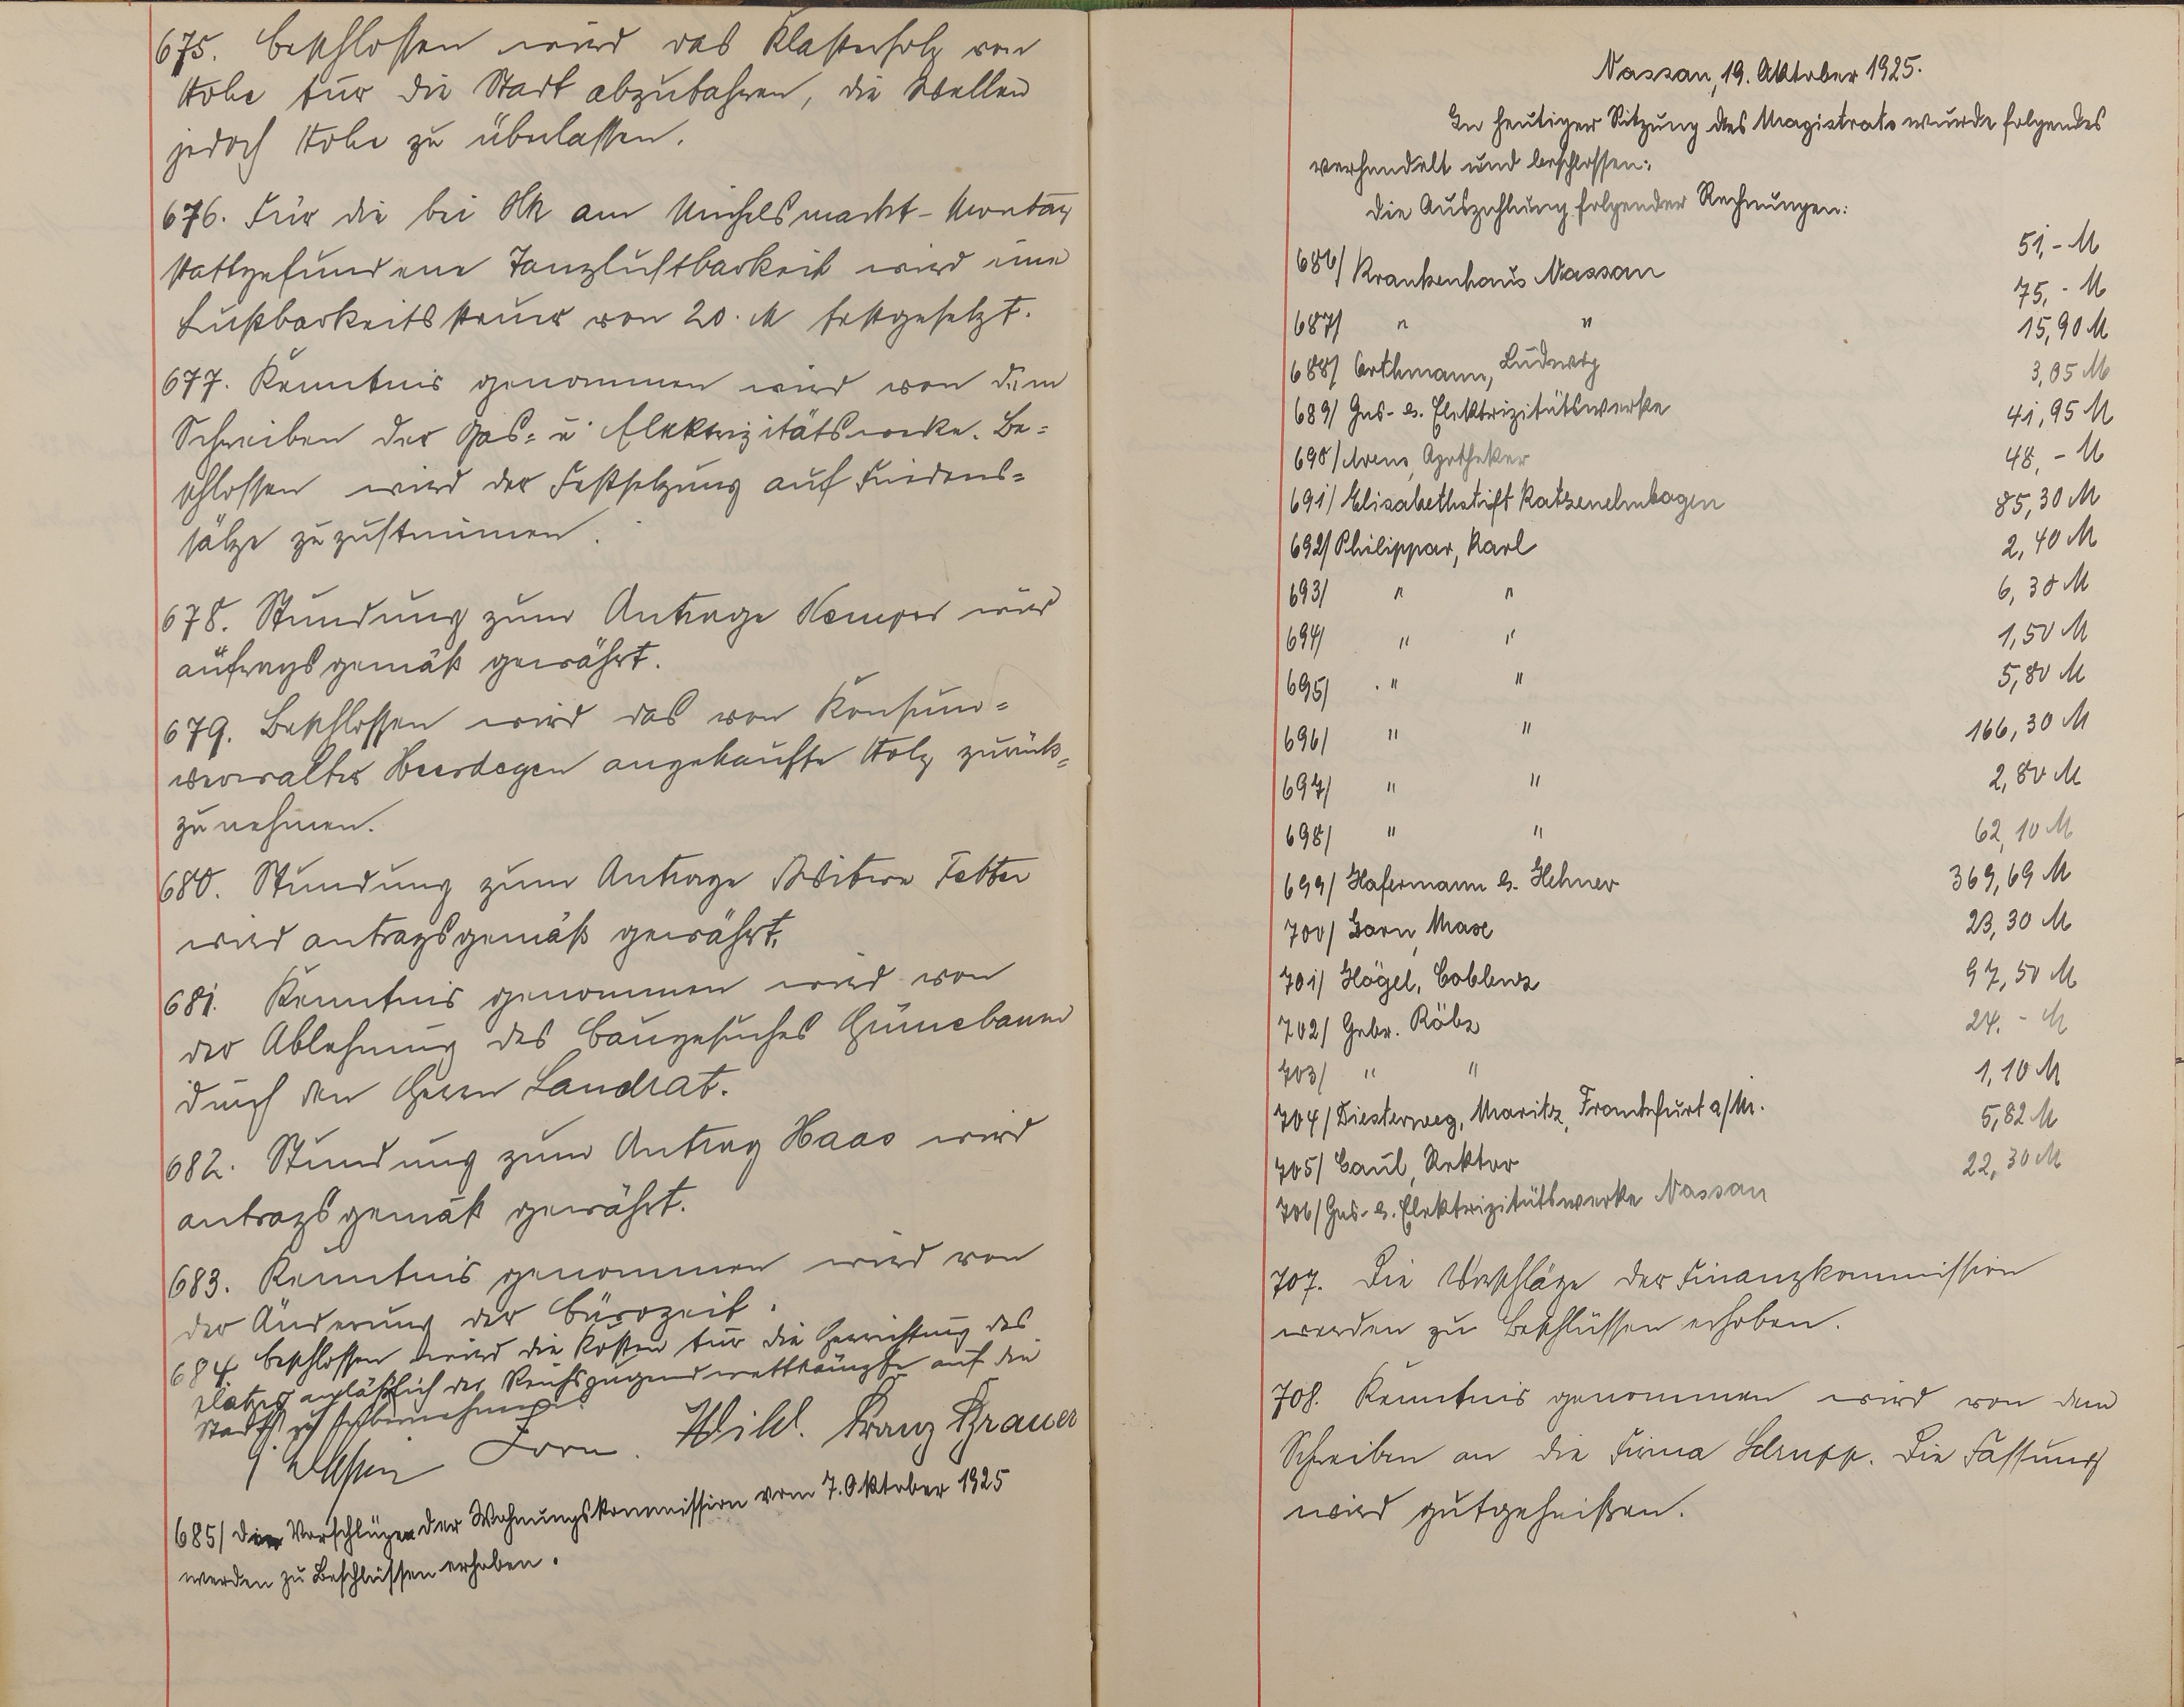 675. beschlossen wird das Klafterholz von
für die Stadt abzufahren, die Wellen
jedoch zu überlassen.
676. Für die bei am Michelsmarkt-Montag
stattgefundene Tanzlustbarkeit wird eine
Lustbarkeitssteuer von 20. M festgesetzt.
677. Kenntnis genommen wird von dem
Schreiben der Gas- u Elektrizitätswerke. Be-
schlossen wird der Festsetzung auf Friedens-
sätze zuzustimmen.
678. Stundung zum Antrage Kemper wird
antragsgemäß gewährt.
679. Beschlossen wird das von Konsum-
verwalter Heerdegen angekaufte Holz zurück-
zunehmen.
680. Stundung zum Antrage Witwe
wird antragsgemäß gewährt.
681. Kenntnis genommen wird von
der Ablehnung des Baugesuches Grünebaum
durch den Herrn Landrat.
682. Stundung zum Antrag Haas wird
antragsgemäß gewährt.
683. Kenntnis genommen wird von
der Änderung der Bürozeit.
684. beschlossen wird die Kosten für die Herrichtung des
Platzes anläßlich der Reichsjugendwettkämpfe auf die
Stadt zu übernehmen.
Zorn. Franz Brauer
685/ Die Vorschläge der Wohnungskommission vom 7. Oktober 1925
werden zu Beschlüssen erhoben.
Nassau, 19. Oktober 1925.
In heutiger Sitzung des Magistrats wurde folgendes
verhandelt und beschlossen:
Die Auszahlung folgender Rechnungen:
686/ Krankenhaus Nassau 51,- M
687/ " " 75,- M
688/ Orthmann, Ludwig 15,90 M
689/ Gas- u. Elektrizitätswerke 3,05 M
690/ Apotheker 41,95 M
691/ Elisabethstift Katzenelnbogen 48,- M
692/ Philippar, Karl 85,30 M
693/ " " 2,40 M
694/ " " 6,30 M
695/ " " 1,50 M
696/ " " 5,80 M
697/ " " 166,30 M
698/ " " 2,80 M
699/ Hafermann u. Hehner 62,10 M
700/ Zorn, Max 369,69 M
701/ Högel, Coblenz 23,30 M
702/ Gebr. Röbz 97,50 M
703/ " " 24.- M
704/ Diesterweg, Moritz, Frankfurt a/M. 1,10 M
705/ Caul, Rektor 5,82 M
706/ Gas- u. Elektrizitätswerke Nassau 22,30 M
707. Die Vorschläge der Finanzkommission
werden zu Beschlüssen erhoben.
708. Kenntnis genommen wird von dem
Schreiben an die Firma Schrupp. Die Fassung
wird gutgeheißen.